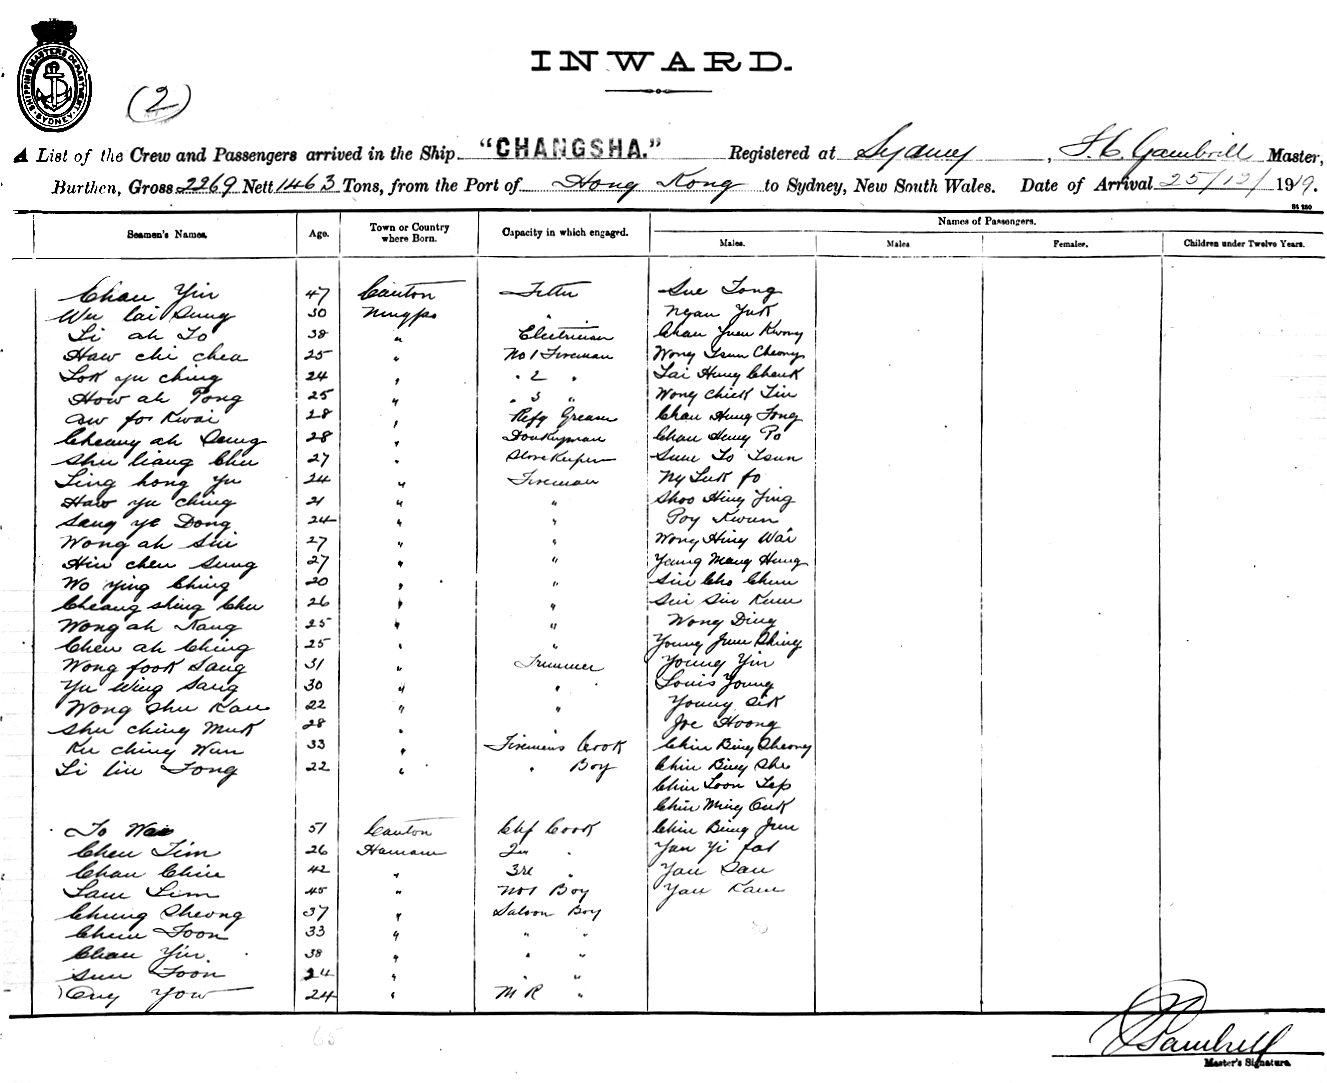 SHIPPING MASTERS DEPARTMENT SYDNEY
INWARD.
(2)
A List of the Crew and Passengers arrived in the Ship "CHANGSHA." Registered at Sydney, Gambrill Master,
Burthen, Gross 2269 Nett 1463 Tons, from the Port of Hong Kong to Sydney, New South Wales. Date of Arrival 25/12/1919.
Seamen's Names. Age. Town or Country where Born. Capacity in which engaged. Names of Passengers.
Males. Males Females. Children under Twelve Years.
Chau Yin 47 Canton Fitter Sue Tong
Wu lai Sung 30 Ningpo " Ngan Yuk
Li ah To 38 " Electrician Chau Yuen Kwong
Haw chi chea 25 " No 1 Fireman Wong Tsun Cheong
Lok yu ching 24 " " 2 " Lai Hung Cheuk
How ah Pong 25 " " 3 " Wong Chick Tin
Aw for Kwai 28 " Refg Greaser Chau Hung Tong
Cheang ah Seung 28 " Donkeyman Chau Heng Po
Shu liang Chu 27 " Storekeeper Sum To Tsun
Ling hong Yu 24 " Fireman Ng Luk fo
Haw yu ching 21 " " Shoo Hing Jing
Sang ye Dong 24 " " Poy Kwun
Wong ah Sui 27 " " Wong Hing Wai
Hin chen Sung 27 " " Yang Mang Hung
Wo ying Ching 20 " " Sin Cho Chun
Cheang shing Chu 26 " " Sin Sin Kum
Wong ah Kang 25 " " Wong Ding
Chen ah Ching 25 " " Young Jum Shing
Wong fook Sang 31 " Trimmer Young Yin
Yu Wing Sang 30 " " Louis Young
Wong Shu Kau 22 " " Young Sik
Shu ching Muk 28 " " Joe Hoong
Ku ching Wun 33 " Firemens Cook Chin Bing Sheong
Li lin Tong 22 " " Boy Chin Bing She
Chin Loon Yep
Chin Ming Ouk
To Wai 51 Canton Chf Cook Chin Bing Jun
Chen Tim 26 " Yan Yi fat
Chau Chiu 42 " 3rd " Yau Sau
Lam Lim 45 " No 1 Boy Yau Kam
Chung Sheong 37 " Saloon Boy
Chun Foon 33 " " "
Chau Yin 38 " " "
Sun Foon 24 " " "
Ong Yow 24 " M R "
65
Gambrill
Master's Signature.